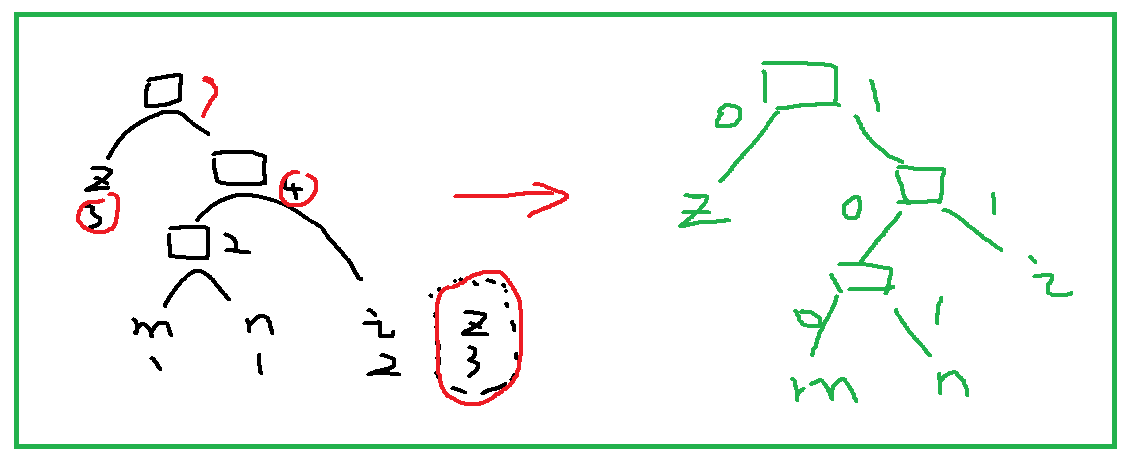 7
z
3
4
2
m n i z
1 1 2 3
0 1
z
0 1
i
0 1
m n